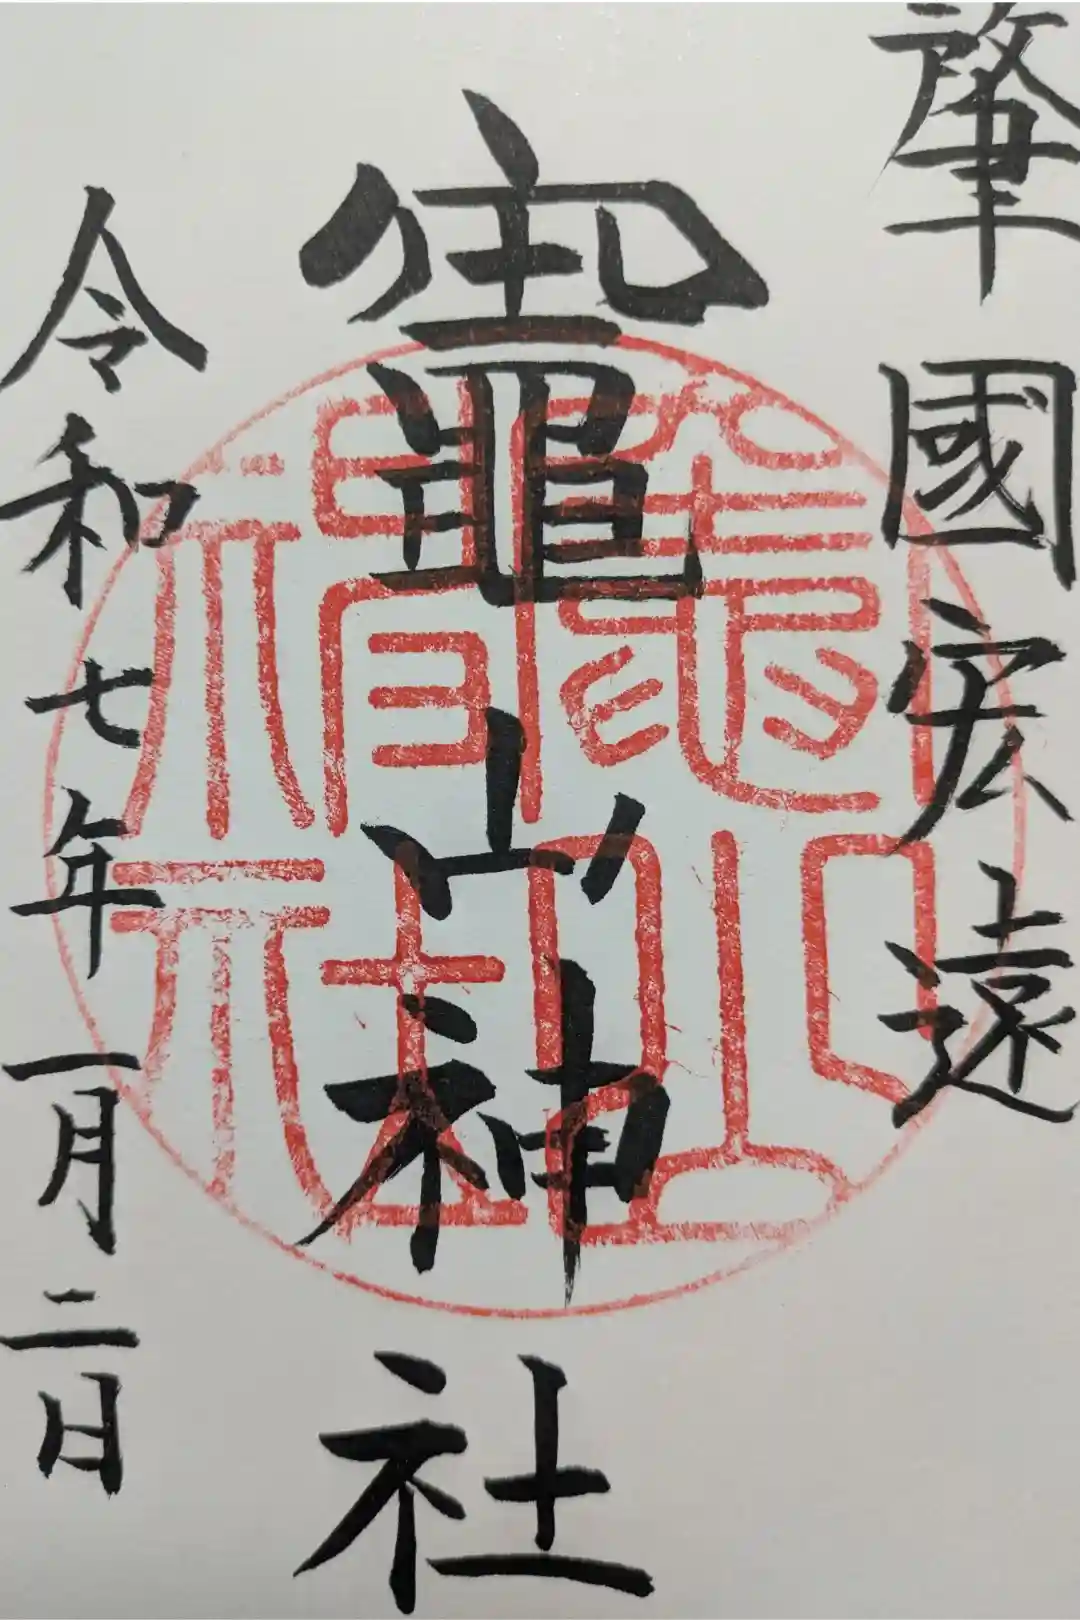 肇國宏遠
竈山神社
令和七年一月二日